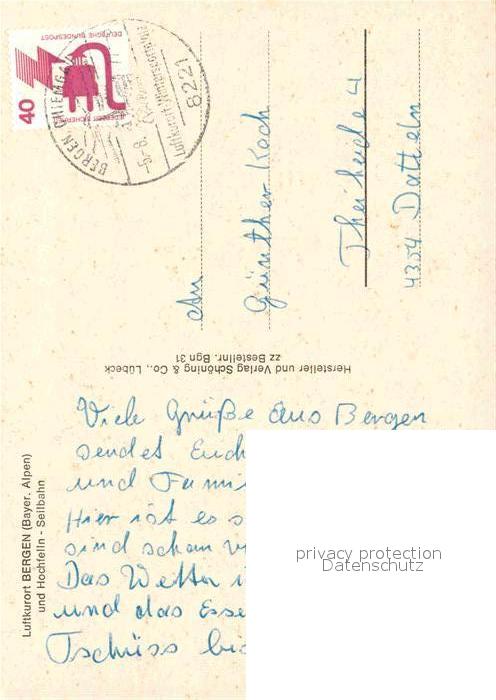 Viele Grüße aus Bergen
sendet Euch
und Fami
Hier ist es s
sind schon
Das Wetter
und das Esse
Tschüss bis
An
Günther Koch
Theiheide 4
4354 Datteln
Luftkurort BERGEN (Bayer. Alpen)
und Hochfelln - Seilbahn
Hersteller und Verlag Schöning & Co., Lübeck
zz Bestellnr. Bgn 31
DEUTSCHE BUNDESPOST
JEDERZEIT SICHERHEIT
40
BERGEN CHIEMGAU
-6.-8.
Luftkurort Wintersportplatz
8221
privacy protection
Datenschutz